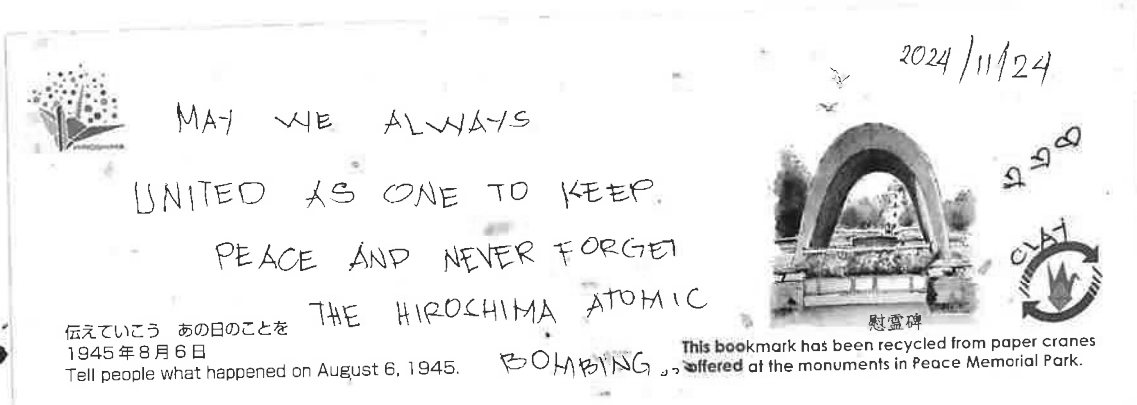 2024/11/24
HIROSHIMA
MAY WE ALWAYS
UNITED AS ONE TO KEEP
PEACE AND NEVER FORGET
THE HIROSHIMA ATOMIC
BOMBING...
CLAY
伝えていこう あの日のことを
1945年8月6日
Tell people what happened on August 6, 1945.
慰霊碑
This bookmark has been recycled from paper cranes
offered at the monuments in Peace Memorial Park.